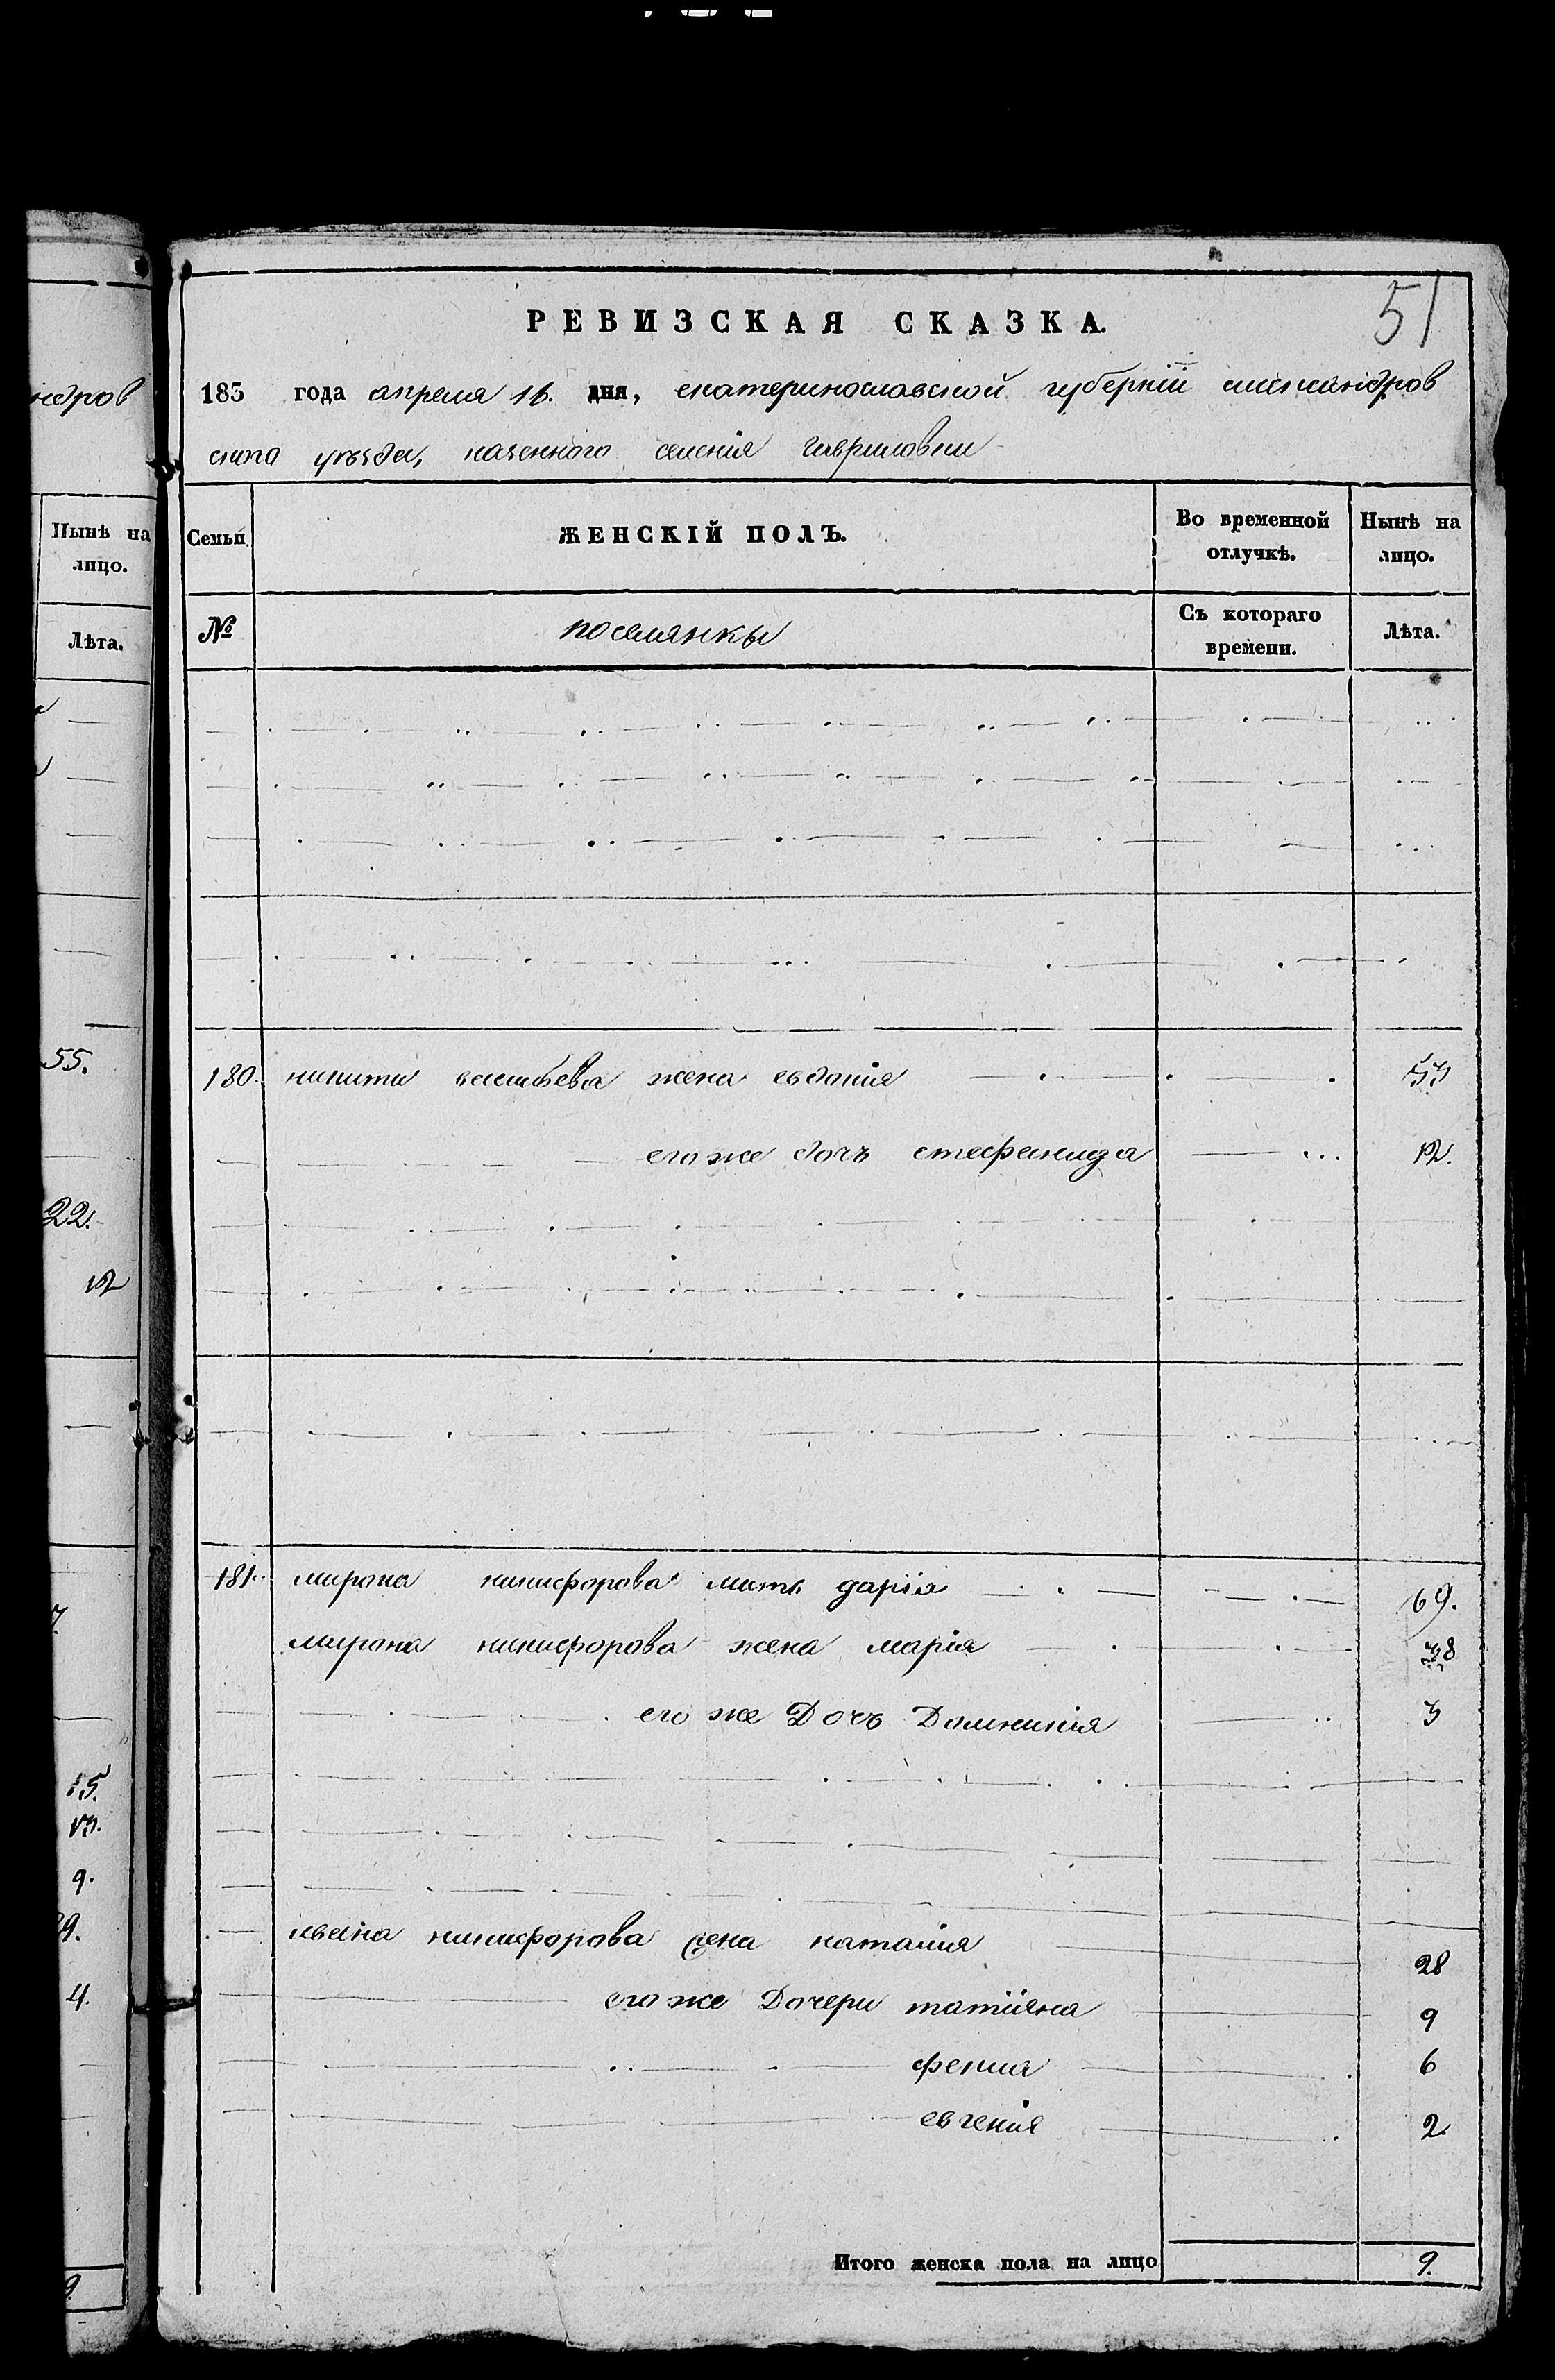 ндров
Нынѣ на
лицо.
Лѣта.
55.
22.
12
15.
13.
9.
9.
4.
9.
51
РЕВИЗСКАЯ СКАЗКА.
183 года апреля 16. дня, екатеринославской губерніи александров
скаго уѣзда, казенного селенія гавриловки
Семьи
ЖЕНСКІЙ ПОЛЪ.
Во временной
отлучкѣ.
Нынѣ на
лицо.
№
поселянкы
Съ котораго
времени.
Лѣта.
180. никити васильева жена евдокія 53
его же дочъ стефанида 12.
181. мирона никифорова мать дарія 69.
мирона никифорова жена марія 38
его же Дочъ Домникія 3
ивана никифорова жена наталия 28
его же Дочери татіяна 9
фекла 6
евгенія 2
Итого женска пола на лицо 9.